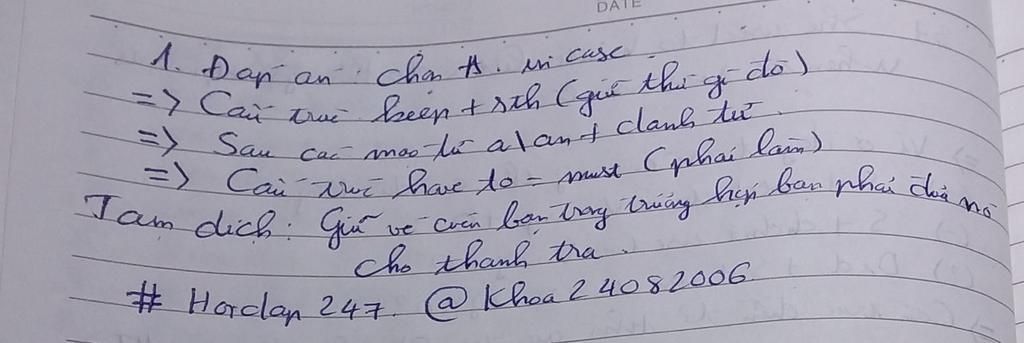 DATE
1. Đáp án: chọn A. in case
=> Cấu trúc keep + sth (giữ thứ gì đó)
=> Sau các mạo từ a/an + danh từ.
=> Cấu trúc have to = must (phải làm)
Tạm dịch: Giữ vé của bạn trong trường hợp bạn phải đưa nó
cho thanh tra.
# Hoidap 247. @Khoa24082006